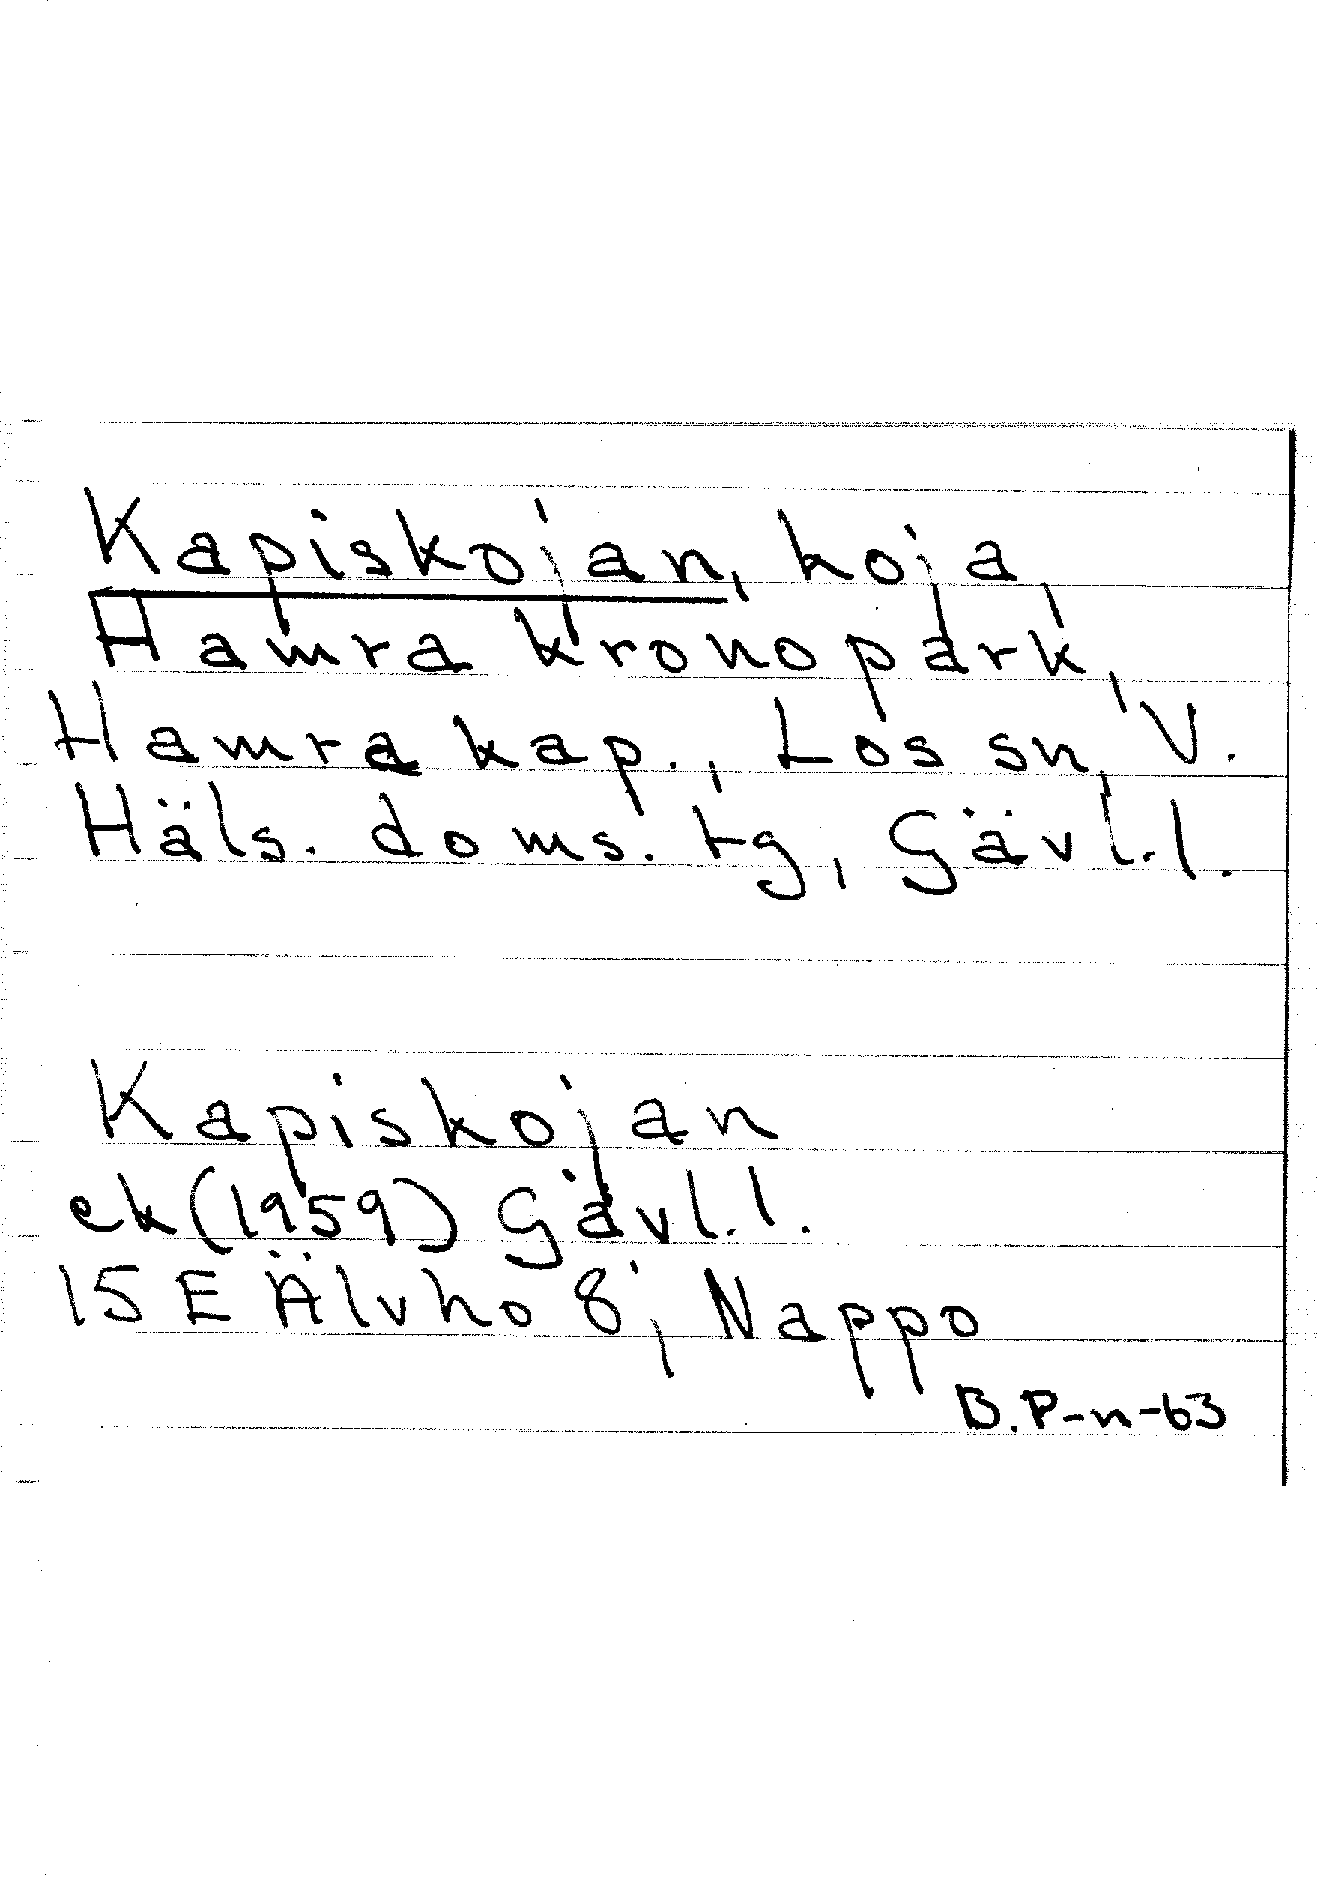 Kapiskojan, koja,
Hamra kronopark,
Hamra kap., Los sn, V.
Häls. doms. tg, Gävl. l.
Kapiskojan
ek (1959) Gävl. l.
15 E Älvho 8; Nappo
B.P-n-63